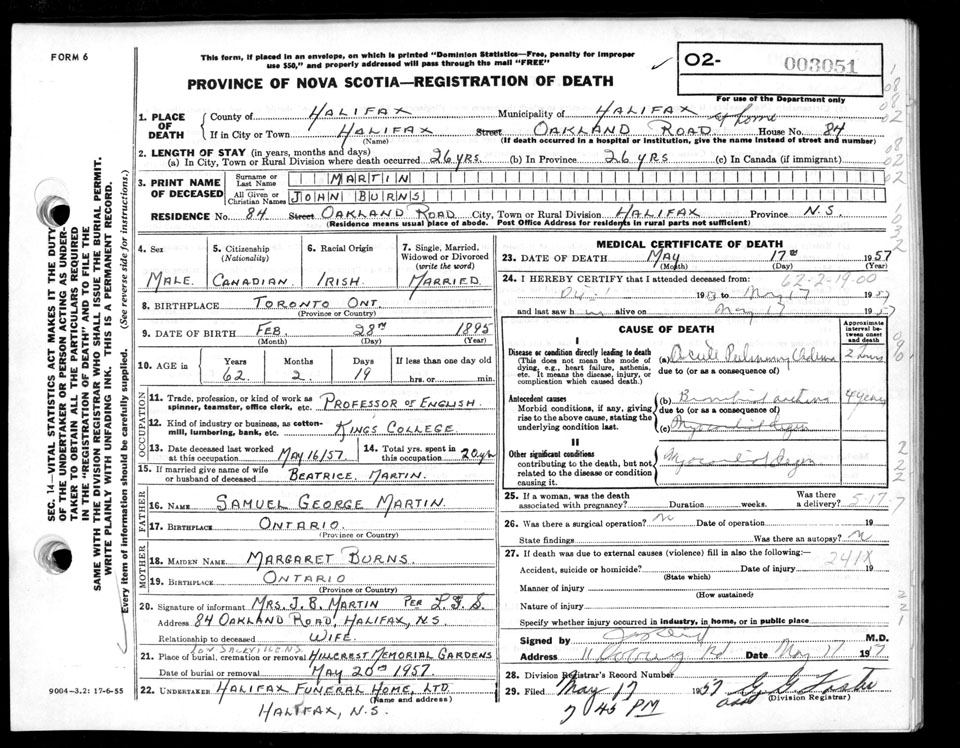 FORM 6
This form, if placed in an envelope, on which is printed "Dominion Statistics—Free, penalty for improper
use $50," and properly addressed will pass through the mail "FREE"
PROVINCE OF NOVA SCOTIA—REGISTRATION OF DEATH
02- 003051
For use of the Department only
1. PLACE OF DEATH
County of HALIFAX Municipality of HALIFAX
at home
If in City or Town HALIFAX Street OAKLAND ROAD House No. 84
(Name) (If death occurred in a hospital or institution, give the name instead of street and number)
2. LENGTH OF STAY (in years, months and days)
(a) In City, Town or Rural Division where death occurred 26 YRS. (b) In Province 26 YRS (c) In Canada (if immigrant)
3. PRINT NAME OF DECEASED
Surname or Last Name MARTIN
All Given or Christian Names JOHN BURNS
RESIDENCE No. 84 Street OAKLAND ROAD City, Town or Rural Division HALIFAX Province N.S.
(Residence means usual place of abode. Post Office Address for residents in rural parts not sufficient)
4. Sex MALE
5. Citizenship (Nationality) CANADIAN
6. Racial Origin IRISH
7. Single, Married, Widowed or Divorced (write the word) MARRIED
8. BIRTHPLACE TORONTO ONT.
(Province or Country)
9. DATE OF BIRTH FEB. 28TH 1895
(Month) (Day) (Year)
10. AGE in Years 62 Months 2 Days 19 If less than one day old
hrs. or min.
OCCUPATION
11. Trade, profession, or kind of work as
spinner, teamster, office clerk, etc. PROFESSOR OF ENGLISH
12. Kind of industry or business, as cotton-
mill, lumbering, bank, etc. KING'S COLLEGE
13. Date deceased last worked
at this occupation MAY 16/57.
14. Total yrs. spent in
this occupation 20 yrs
15. If married give name of wife
or husband of deceased BEATRICE MARTIN.
FATHER
16. NAME SAMUEL GEORGE MARTIN.
17. BIRTHPLACE ONTARIO.
(Province or Country)
MOTHER
18. MAIDEN NAME MARGARET BURNS.
19. BIRTHPLACE ONTARIO
(Province or Country)
20. Signature of informant MRS. J. B. MARTIN PER
Address 84 OAKLAND ROAD, HALIFAX, N.S.
Relationship to deceased WIFE.
SACKVILLE N.S.
21. Place of burial, cremation or removal HILLCREST MEMORIAL GARDENS
Date of burial or removal MAY 20TH 1957.
22. UNDERTAKER HALIFAX FUNERAL HOME, LTD.
(Name and address)
HALIFAX, N.S.
9004—3.2: 17-6-55
MEDICAL CERTIFICATE OF DEATH
23. DATE OF DEATH MAY 17TH 1957
(Month) (Day) (Year)
62-2-19-00
24. I HEREBY CERTIFY that I attended deceased from:
19 to May 17 1957
and last saw h alive on May 17 1957
CAUSE OF DEATH
Approximate interval between onset and death
I
Disease or condition directly leading to death
(This does not mean the mode of
dying, e.g., heart failure, asthenia,
etc. It means the disease, injury, or
complication which caused death.)
(a) Acute Pulmonary Edema 2 hours
due to (or as a consequence of)
Antecedent causes
Morbid conditions, if any, giving
rise to the above cause, stating the
underlying condition last.
(b) Bronchial asthma 4 years
due to (or as a consequence of)
(c) Myocardial Degen
II
Other significant conditions
contributing to the death, but not
related to the disease or condition
causing it.
Myocardial Degen
25. If a woman, was the death
associated with pregnancy? Duration weeks. Was there
a delivery? 5-17-7
26. Was there a surgical operation? N Date of operation 19
State findings Was there an autopsy? N
27. If death was due to external causes (violence) fill in also the following:—
241X
Accident, suicide or homicide? Date of injury 19
(State which)
Manner of injury
(How sustained)
Nature of injury
Specify whether injury occurred in industry, in home, or in public place
Signed by M.D.
Address 11 Rd Date May 17 1957
28. Division Registrar's Record Number
29. Filed May 17 1957
(Division Registrar)
7 45 PM
SEC. 14—VITAL STATISTICS ACT MAKES IT THE DUTY
OF THE UNDERTAKER OR PERSON ACTING AS UNDER-
TAKER TO OBTAIN ALL THE PARTICULARS REQUIRED
IN THE "REGISTRATION OF DEATH" AND TO FILE THE
SAME WITH THE DIVISION REGISTRAR WHO SHALL ISSUE THE BURIAL PERMIT.
WRITE PLAINLY WITH UNFADING INK. THIS IS A PERMANENT RECORD.
Every item of information should be carefully supplied. (See reverse side for instructions.)